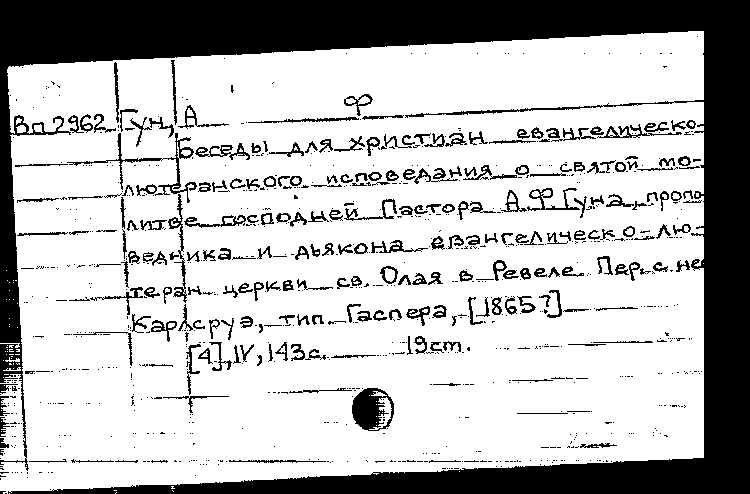 Вп 2962 Гун, А Ф
Беседы для христиан евангелическо-
лютеранского исповедания о святой мо-
литве господней Пастора А.Ф. Гуна, пропо-
ведника и дьякона евангелическо-лю-
теран. церкви св. Олая в Ревеле. Пер. с не
Карлсруэ, тип. Гаспера, [1865?]
[4], IV, 143 с. 19 cm.